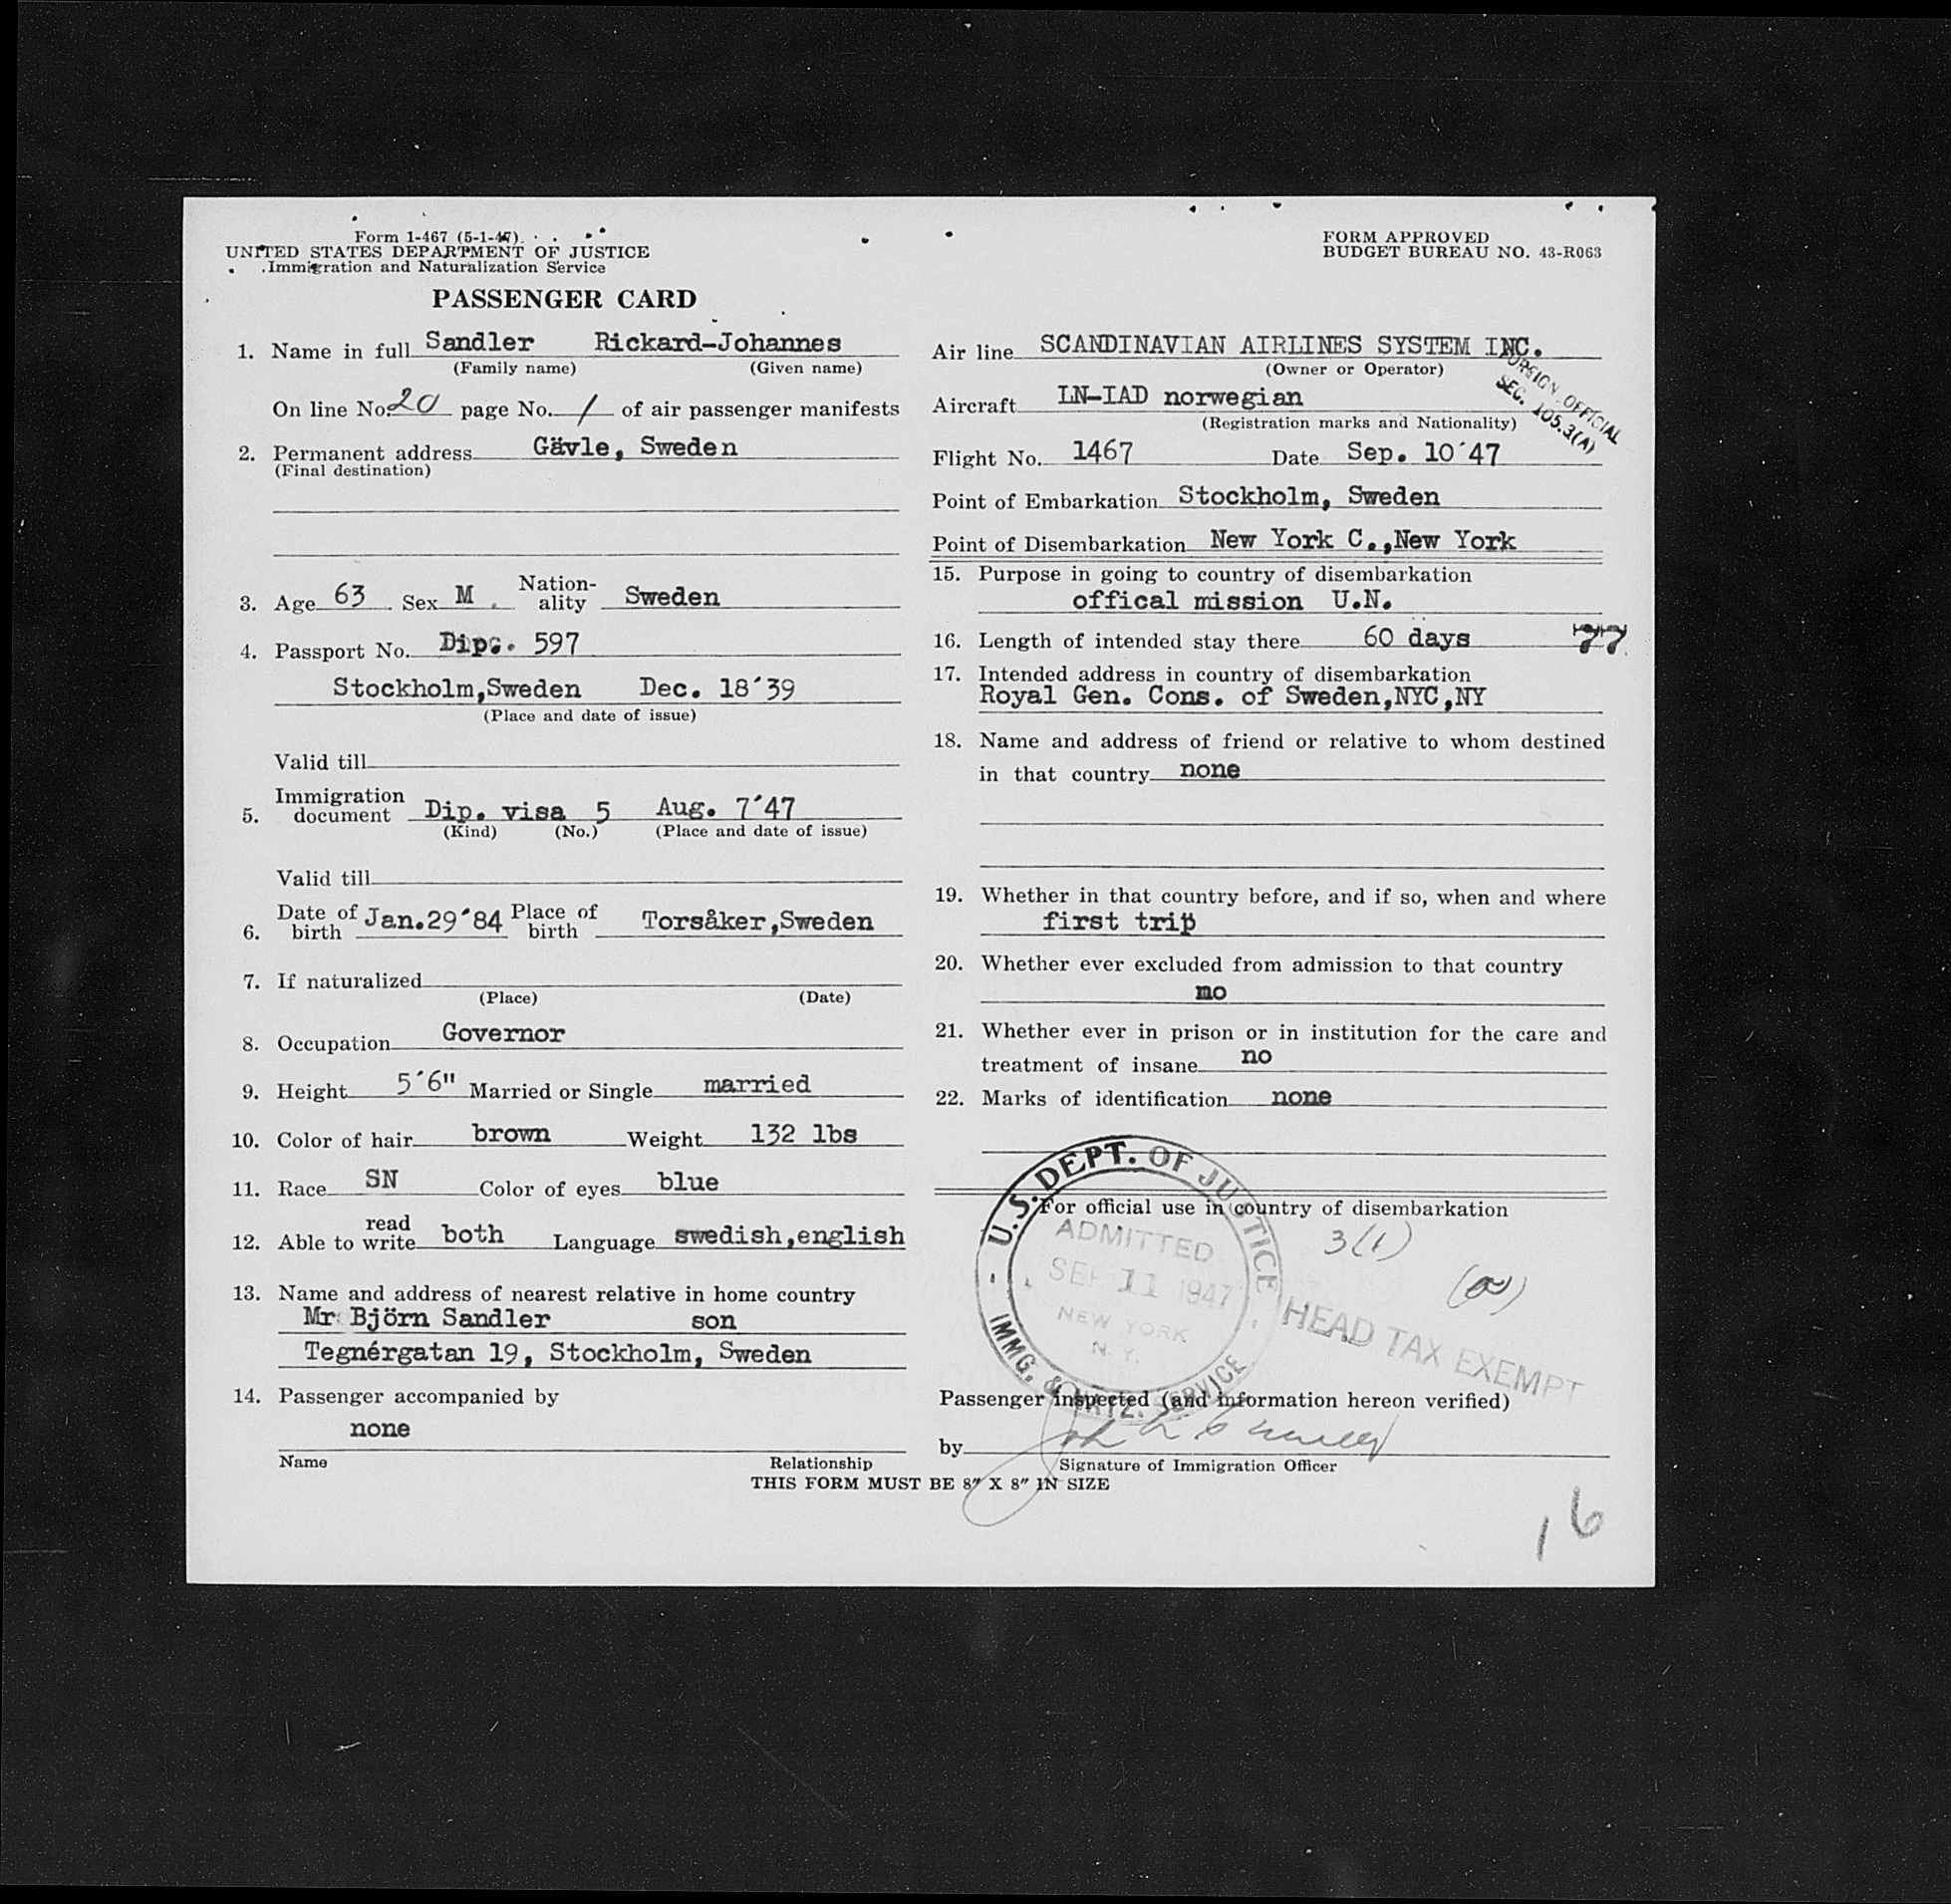 Form 1-467 (5-1-47)
UNITED STATES DEPARTMENT OF JUSTICE
Immigration and Naturalization Service
PASSENGER CARD
FORM APPROVED
BUDGET BUREAU NO. 43-R063
1. Name in full Sandler Rickard-Johannes
(Family name) (Given name)
On line No. 20 page No. 1 of air passenger manifests
2. Permanent address Gävle, Sweden
(Final destination)
3. Age 63 Sex M Nation-
ality Sweden
4. Passport No. Dip. 597
Stockholm,Sweden Dec. 18'39
(Place and date of issue)
Valid till
5. Immigration
document Dip. visa 5 Aug. 7'47
(Kind) (No.) (Place and date of issue)
Valid till
6. Date of
birth Jan.29'84 Place of
birth Torsåker,Sweden
7. If naturalized
(Place) (Date)
8. Occupation Governor
9. Height 5'6" Married or Single married
10. Color of hair brown Weight 132 lbs
11. Race SN Color of eyes blue
12. Able to read
write both Language swedish,english
13. Name and address of nearest relative in home country
Mr Björn Sandler son
Tegnérgatan 19, Stockholm, Sweden
14. Passenger accompanied by
none
Name Relationship
Air line SCANDINAVIAN AIRLINES SYSTEM INC.
(Owner or Operator)
FOREIGN OFFICIAL
SEC. 105.3(A)
Aircraft LN-IAD norwegian
(Registration marks and Nationality)
Flight No. 1467 Date Sep. 10'47
Point of Embarkation Stockholm, Sweden
Point of Disembarkation New York C.,New York
15. Purpose in going to country of disembarkation
offical mission U.N.
16. Length of intended stay there 60 days 77
17. Intended address in country of disembarkation
Royal Gen. Cons. of Sweden,NYC,NY
18. Name and address of friend or relative to whom destined
in that country none
19. Whether in that country before, and if so, when and where
first trip
20. Whether ever excluded from admission to that country
no
21. Whether ever in prison or in institution for the care and
treatment of insane no
22. Marks of identification none
For official use in country of disembarkation
3(1)
U.S. DEPT. OF JUSTICE
ADMITTED
SEP 11 1947
NEW YORK
N. Y.
IMMG. & NATZ. SERVICE
HEAD TAX EXEMPT
Passenger inspected (and information hereon verified)
by
Signature of Immigration Officer
THIS FORM MUST BE 8" X 8" IN SIZE
16